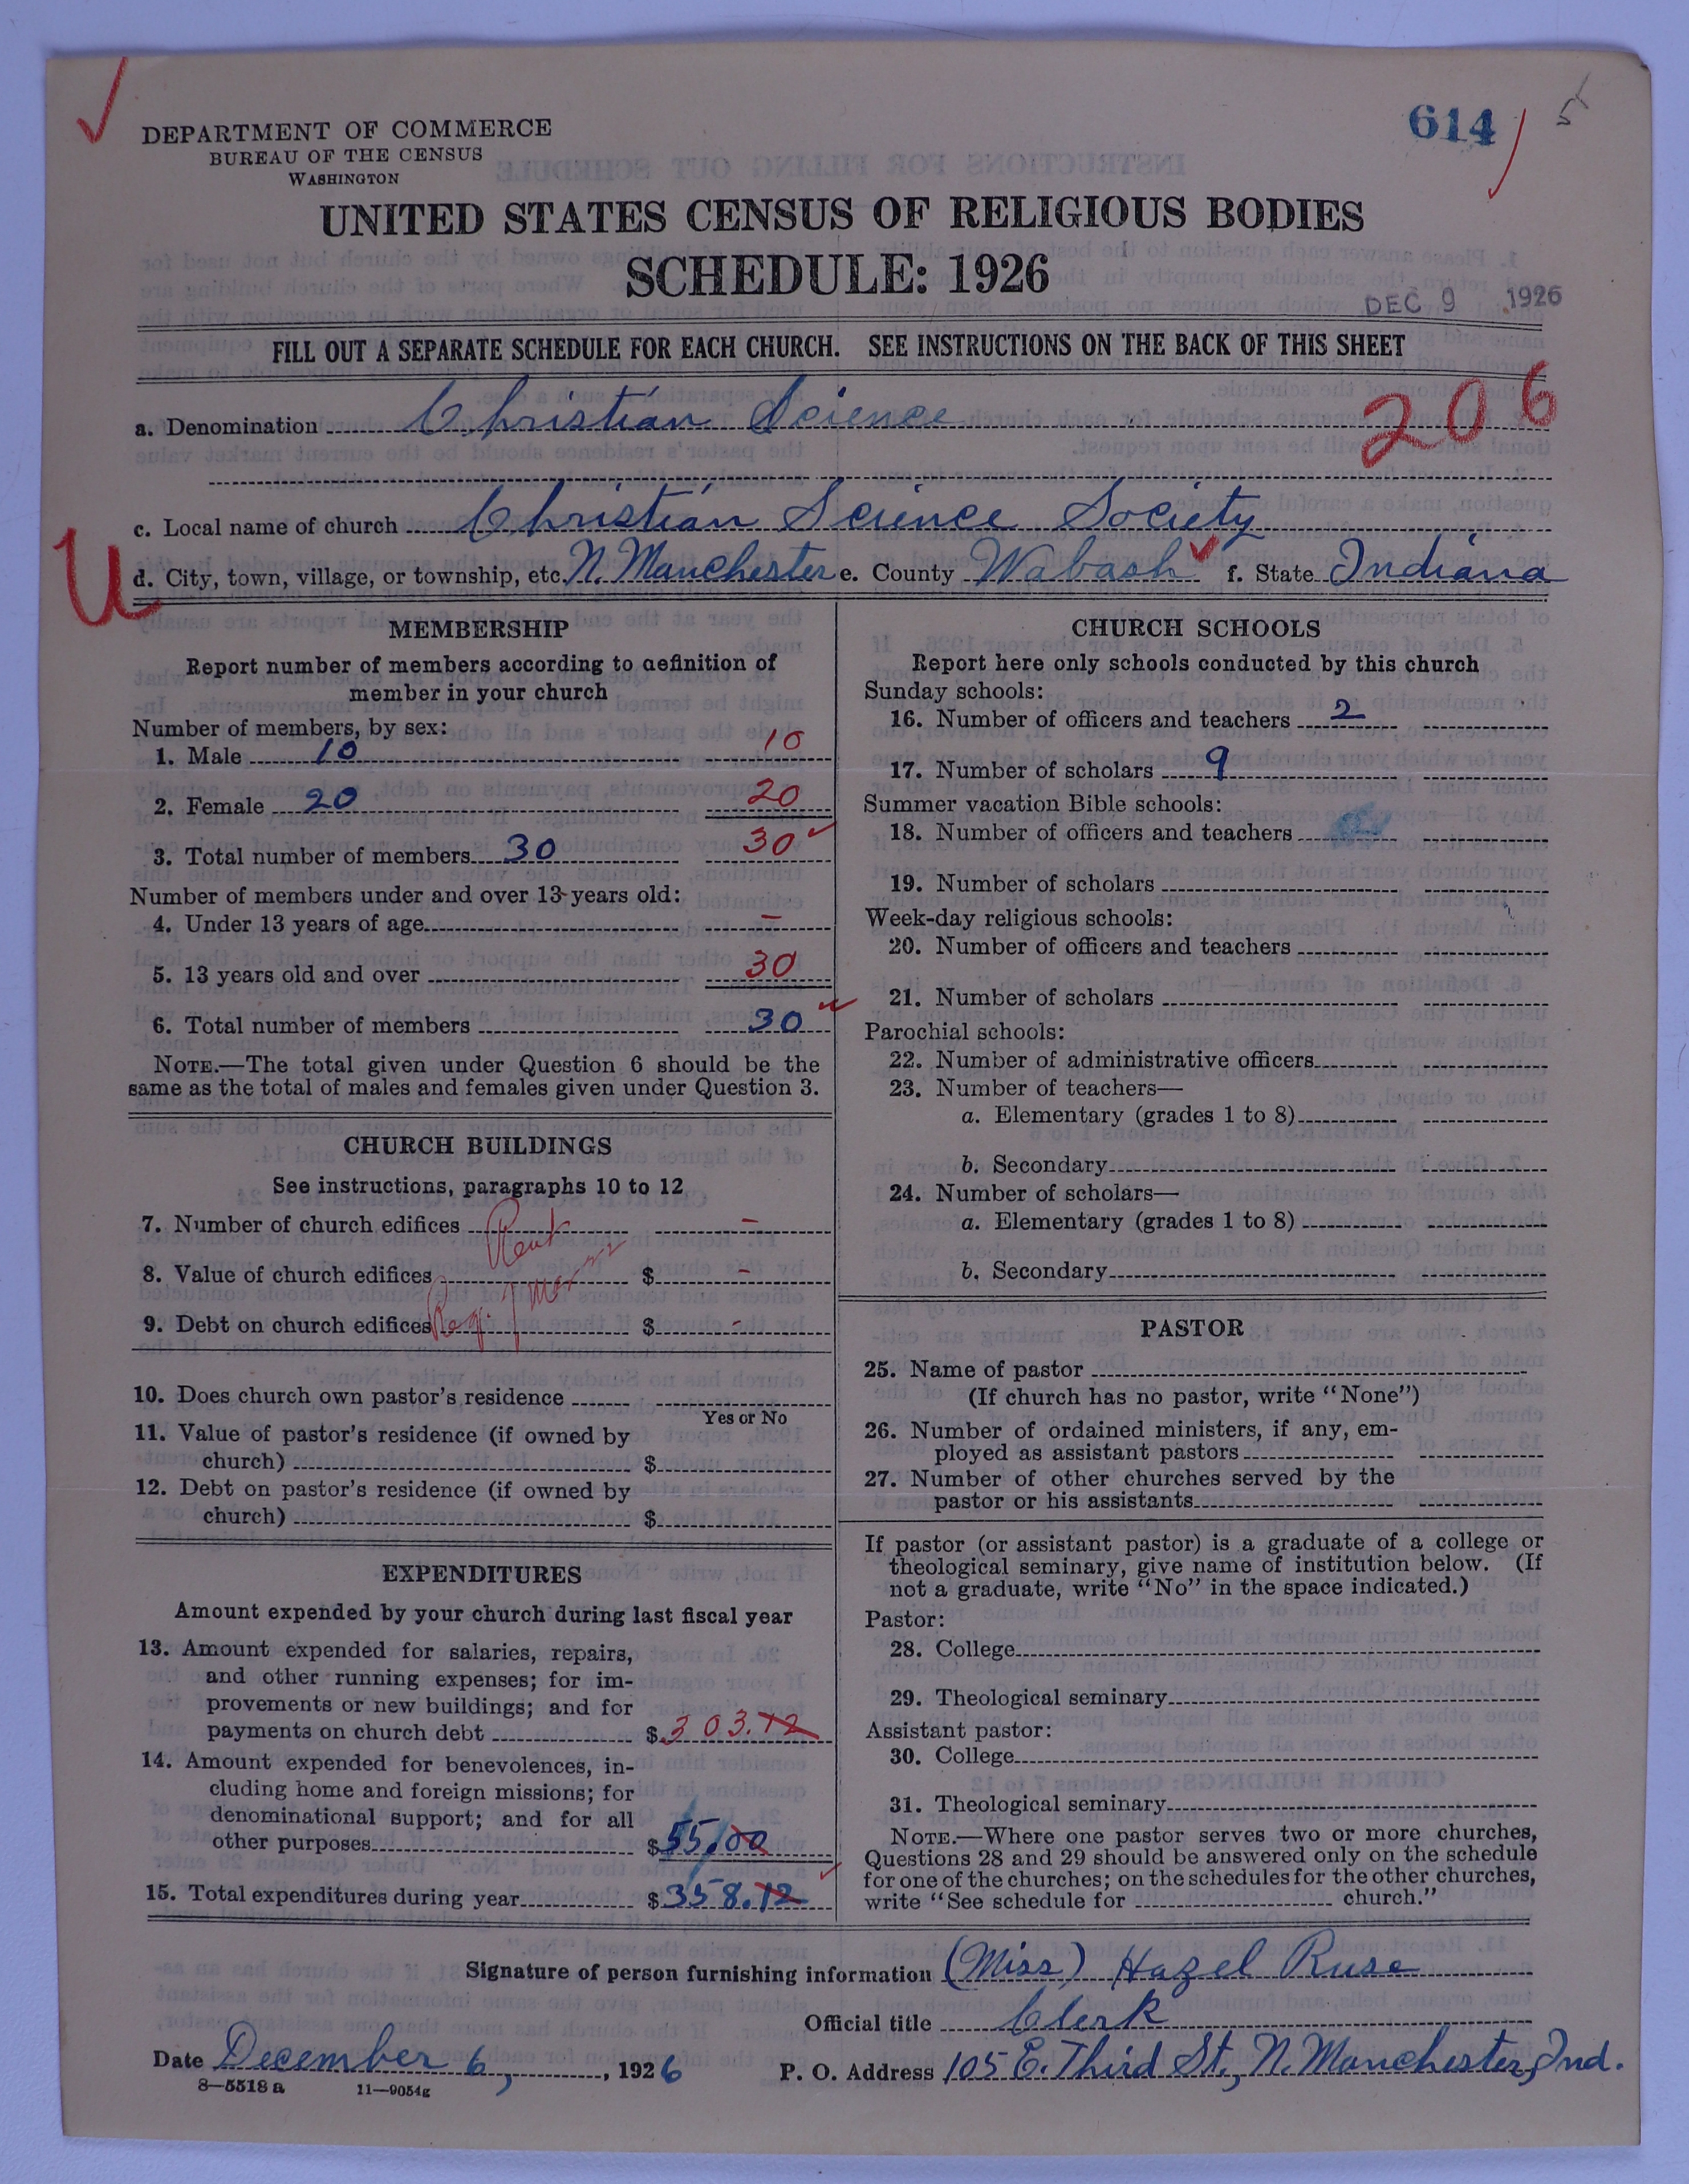 DEPARTMENT OF COMMERCE
BUREAU OF THE CENSUS
WASHINGTON
614
5
UNITED STATES CENSUS OF RELIGIOUS BODIES
SCHEDULE: 1926
DEC 9 1926
FILL OUT A SEPARATE SCHEDULE FOR EACH CHURCH. SEE INSTRUCTIONS ON THE BACK OF THIS SHEET
a. Denomination Christian Science
206
c. Local name of church Christian Science Society
U
d. City, town, village, or township, etc. N. Manchester e. County Wabash f. State Indiana
MEMBERSHIP
Report number of members according to definition of
member in your church
Number of members, by sex:
1. Male 10 10
2. Female 20 20
3. Total number of members 30 30
Number of members under and over 13 years old:
4. Under 13 years of age –
5. 13 years old and over 30
6. Total number of members 30
NOTE.—The total given under Question 6 should be the
same as the total of males and females given under Question 3.
CHURCH BUILDINGS
See instructions, paragraphs 10 to 12
7. Number of church edifices Rent –
8. Value of church edifices $ –
9. Debt on church edifices $ –
10. Does church own pastor's residence
Yes or No
11. Value of pastor's residence (if owned by
church) $
12. Debt on pastor's residence (if owned by
church) $
EXPENDITURES
Amount expended by your church during last fiscal year
13. Amount expended for salaries, repairs,
and other running expenses; for im-
provements or new buildings; and for
payments on church debt $ 303.12
14. Amount expended for benevolences, in-
cluding home and foreign missions; for
denominational support; and for all
other purposes $ 55.00
15. Total expenditures during year $ 358.12
CHURCH SCHOOLS
Report here only schools conducted by this church
Sunday schools:
16. Number of officers and teachers 2
17. Number of scholars 9
Summer vacation Bible schools:
18. Number of officers and teachers
19. Number of scholars
Week-day religious schools:
20. Number of officers and teachers
21. Number of scholars
Parochial schools:
22. Number of administrative officers
23. Number of teachers—
a. Elementary (grades 1 to 8)
b. Secondary
24. Number of scholars—
a. Elementary (grades 1 to 8)
b. Secondary
PASTOR
25. Name of pastor
(If church has no pastor, write "None")
26. Number of ordained ministers, if any, em-
ployed as assistant pastors
27. Number of other churches served by the
pastor or his assistants
If pastor (or assistant pastor) is a graduate of a college or
theological seminary, give name of institution below. (If
not a graduate, write "No" in the space indicated.)
Pastor:
28. College
29. Theological seminary
Assistant pastor:
30. College
31. Theological seminary
NOTE.—Where one pastor serves two or more churches,
Questions 28 and 29 should be answered only on the schedule
for one of the churches; on the schedules for the other churches,
write "See schedule for church."
Signature of person furnishing information (Miss) Hazel Ruse
Official title Clerk
Date December 6, 1926 P. O. Address 105 E. Third St., N. Manchester, Ind.
8—5518 a 11—9054g